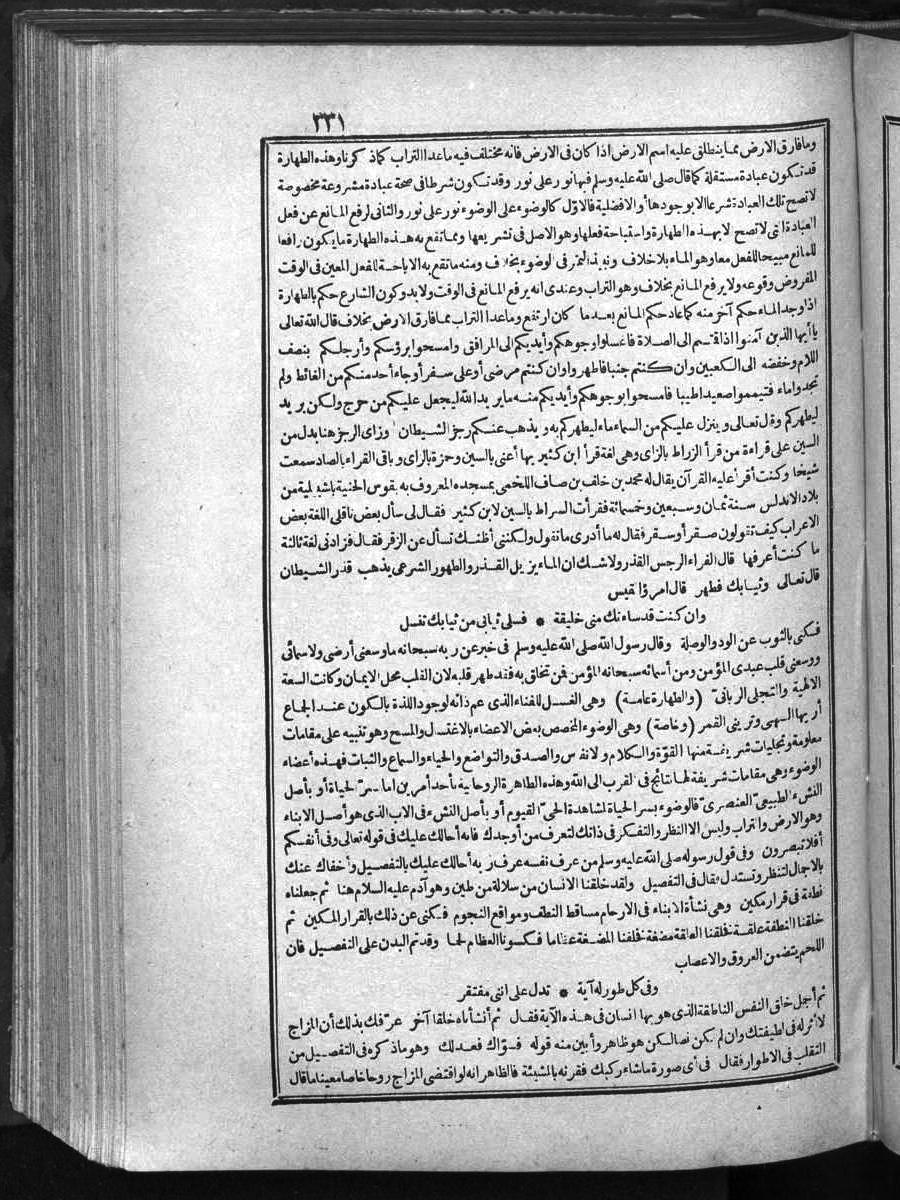 ٣٣١
وما فارق الارض مما ينطلق عليه اسم الارض اذا كان فى الارض فانه مختلف فيه ماعدا التراب كما ذكرناوهذه الطهارة
قد تكون عبادة مستقلة كما قال صلى الله عليه وسلم فيها نور على نور وقد تكون شرطا فى صحة عبادة مشروعة مخصوصة
لا تصح تلك العبادة شرعا الا بوجودها أو الافضلية فالاوّل كالوضوء على الوضوء نور على نور والثانى لرفع المانع عن فعل
العبادة التى لا تصح الا بهذه الطهارة واستباحة فعلها وهو الاصل فى تشريعها ومما تقع به هذه الطهارة ما يكون رافعا
للمانع مبيحا للفعل معا وهو الماء بلا خلاف ونبيذ التمر فى الوضوء بخلاف ومنه ما تقع به الاباحة للفعل المعين فى الوقت
المفروض وقوعه ولا يرفع المانع بخلاف وهو التراب وعندى انه يرفع المانع فى الوقت ولا بد وكون الشارع حكم بالطهارة
اذا وجد الماء حكم آخر منه كما عاد حكم المانع بعد ما كان ارتفع وماعدا التراب مما فارق الارض بخلاف قال الله تعالى
يا أيها الذين آمنوا اذا قمتم الى الصلاة فاغسلوا وجوهكم وأيديكم الى المرافق وامسحوا برؤسكم وأرجلكم بنصف
اللام وخفضه الى الكعبين وان كنتم جنبا فاطهروا وان كنتم مرضى أو على سفر أو جاء أحد منكم من الغائط ولم
تجدوا ماء فتيمموا صعيدا طيبا فامسحوا بوجوهكم وأيديكم منه ما يريد الله ليجعل عليكم من حرج ولكن يريد
ليطهركم وقال تعالى وينزل عليكم من السماء ماء ليطهركم به ويذهب عنكم رجز الشيطان وزاى الرجز هنا بدل من
السين على قراءة من قرأ الزراط بالزاى وهى لغة قرأ ابن كثير بها أعنى بالسين وحمزة بالزاى وباقى القراء بالصاد سمعت
شيخا وكنت أقرأ عليه القرآن يقال له محمد بن خلف بن صاف اللخمى بمسجده المعروف به بقوس الحنية باشبيلية من
بلاد الاندلس سنة ثمان وسبعين وخمسمائة فقرأت السراط بالسين لابن كثير فقال لى سأل بعض ناقلى اللغة بعض
الاعراب كيف تقولون صقر أو سقر فقال له ما أدرى ما تقول ولكننى أظنك تسأل عن الزقر فقال فزادنى لغة ثالثة
ما كنت أعرفها قال الفراء الرجس القذر ولا شك ان الماء يزيل القذر والطهور الشرعى يذهب قذر الشيطان
قال تعالى وثيابك فطهر قال امرؤ القيس
وان كنت قد ساءتك منى خليقة * فسلى ثيابى من ثيابك تنسل
فكنى بالثوب عن الود والوصلة وقال رسول الله صلى الله عليه وسلم فى خبر عن ربه سبحانه ما وسعنى أرضى ولا سمائى
ووسعنى قلب عبدى المؤمن ومن أسمائه سبحانه المؤمن فمن تخلق به فقد طهر قلبه لان القلب محل الايمان وكانت السعة
الالهية والتجلى الربانىّ (والطهارة عامة) وهى الغسل للفناء الذى عم ذاته لوجود اللذة بالكون عند الجماع
أريها السهى وترينى القمر (وخاصة) وهى الوضوء المخصص ببعض الاعضاء بالاغتسال والمسح وهو تنبيه على مقامات
معلومة وتجليات شريفة منها القوّة والكلام والانفاس والصدق والتواضع والحياء والسماع والثبات فهذه أعضاء
الوضوء وهى مقامات شريفة لها نتائج فى القرب الى الله وهذه الطاهرة الروحانية بأحد أمرين اما بسرّ الحياة أو بأصل
النشء الطبيعىّ العنصرىّ فالوضوء بسر الحياة لمشاهدة الحىّ القيوم أو بأصل النشء فى الاب الذى هو أصل الابناء
وهو الارض والتراب وليس الا النظر والتفكر فى ذاتك لتعرف من أوجدك فانه أحالك عليك فى قوله تعالى وفى أنفسكم
أفلا تبصرون وفى قول رسوله صلى الله عليه وسلم من عرف نفسه عرف ربه أحالك عليك بالتفصيل وأخفاك عنك
بالاجمال لتنظر وتستدل فقال فى التفصيل ولقد خلقنا الانسان من سلالة من طين وهو آدم عليه السلام هنا ثم جعلناه
نطفة فى قرار مكين وهى نشأة الابناء فى الارحام مساقط النطف ومواقع النجوم فكنى عن ذلك بالقرار المكين ثم
خلقنا النطفة علقة فخلقنا العلقة مضغة فخلقنا المضغة عظاما فكسونا العظام لحما وقد تم البدن على التفصيل فان
اللحم يتضمن العروق والاعصاب
وفى كل طور له آية * تدل على اننى مفتقر
ثم أجمل خلق النفس الناطقة الذى هو بها انسان فى هذه الآية فقال ثم أنشأناه خلقا آخر عرّفك بذلك أن المزاج
لا أثر له فى لطيفتك وان لم يكن نصا لكن هو ظاهر وأبين منه قوله فسوّاك فعدلك وهو ما ذكره فى التفصيل من
التقلب فى الاطوار فقال فى أى صورة ما شاء ركبك فقرنه بالمشيئة فالظاهر انه لو اقتضى المزاج روحا خاصا معينا ما قال